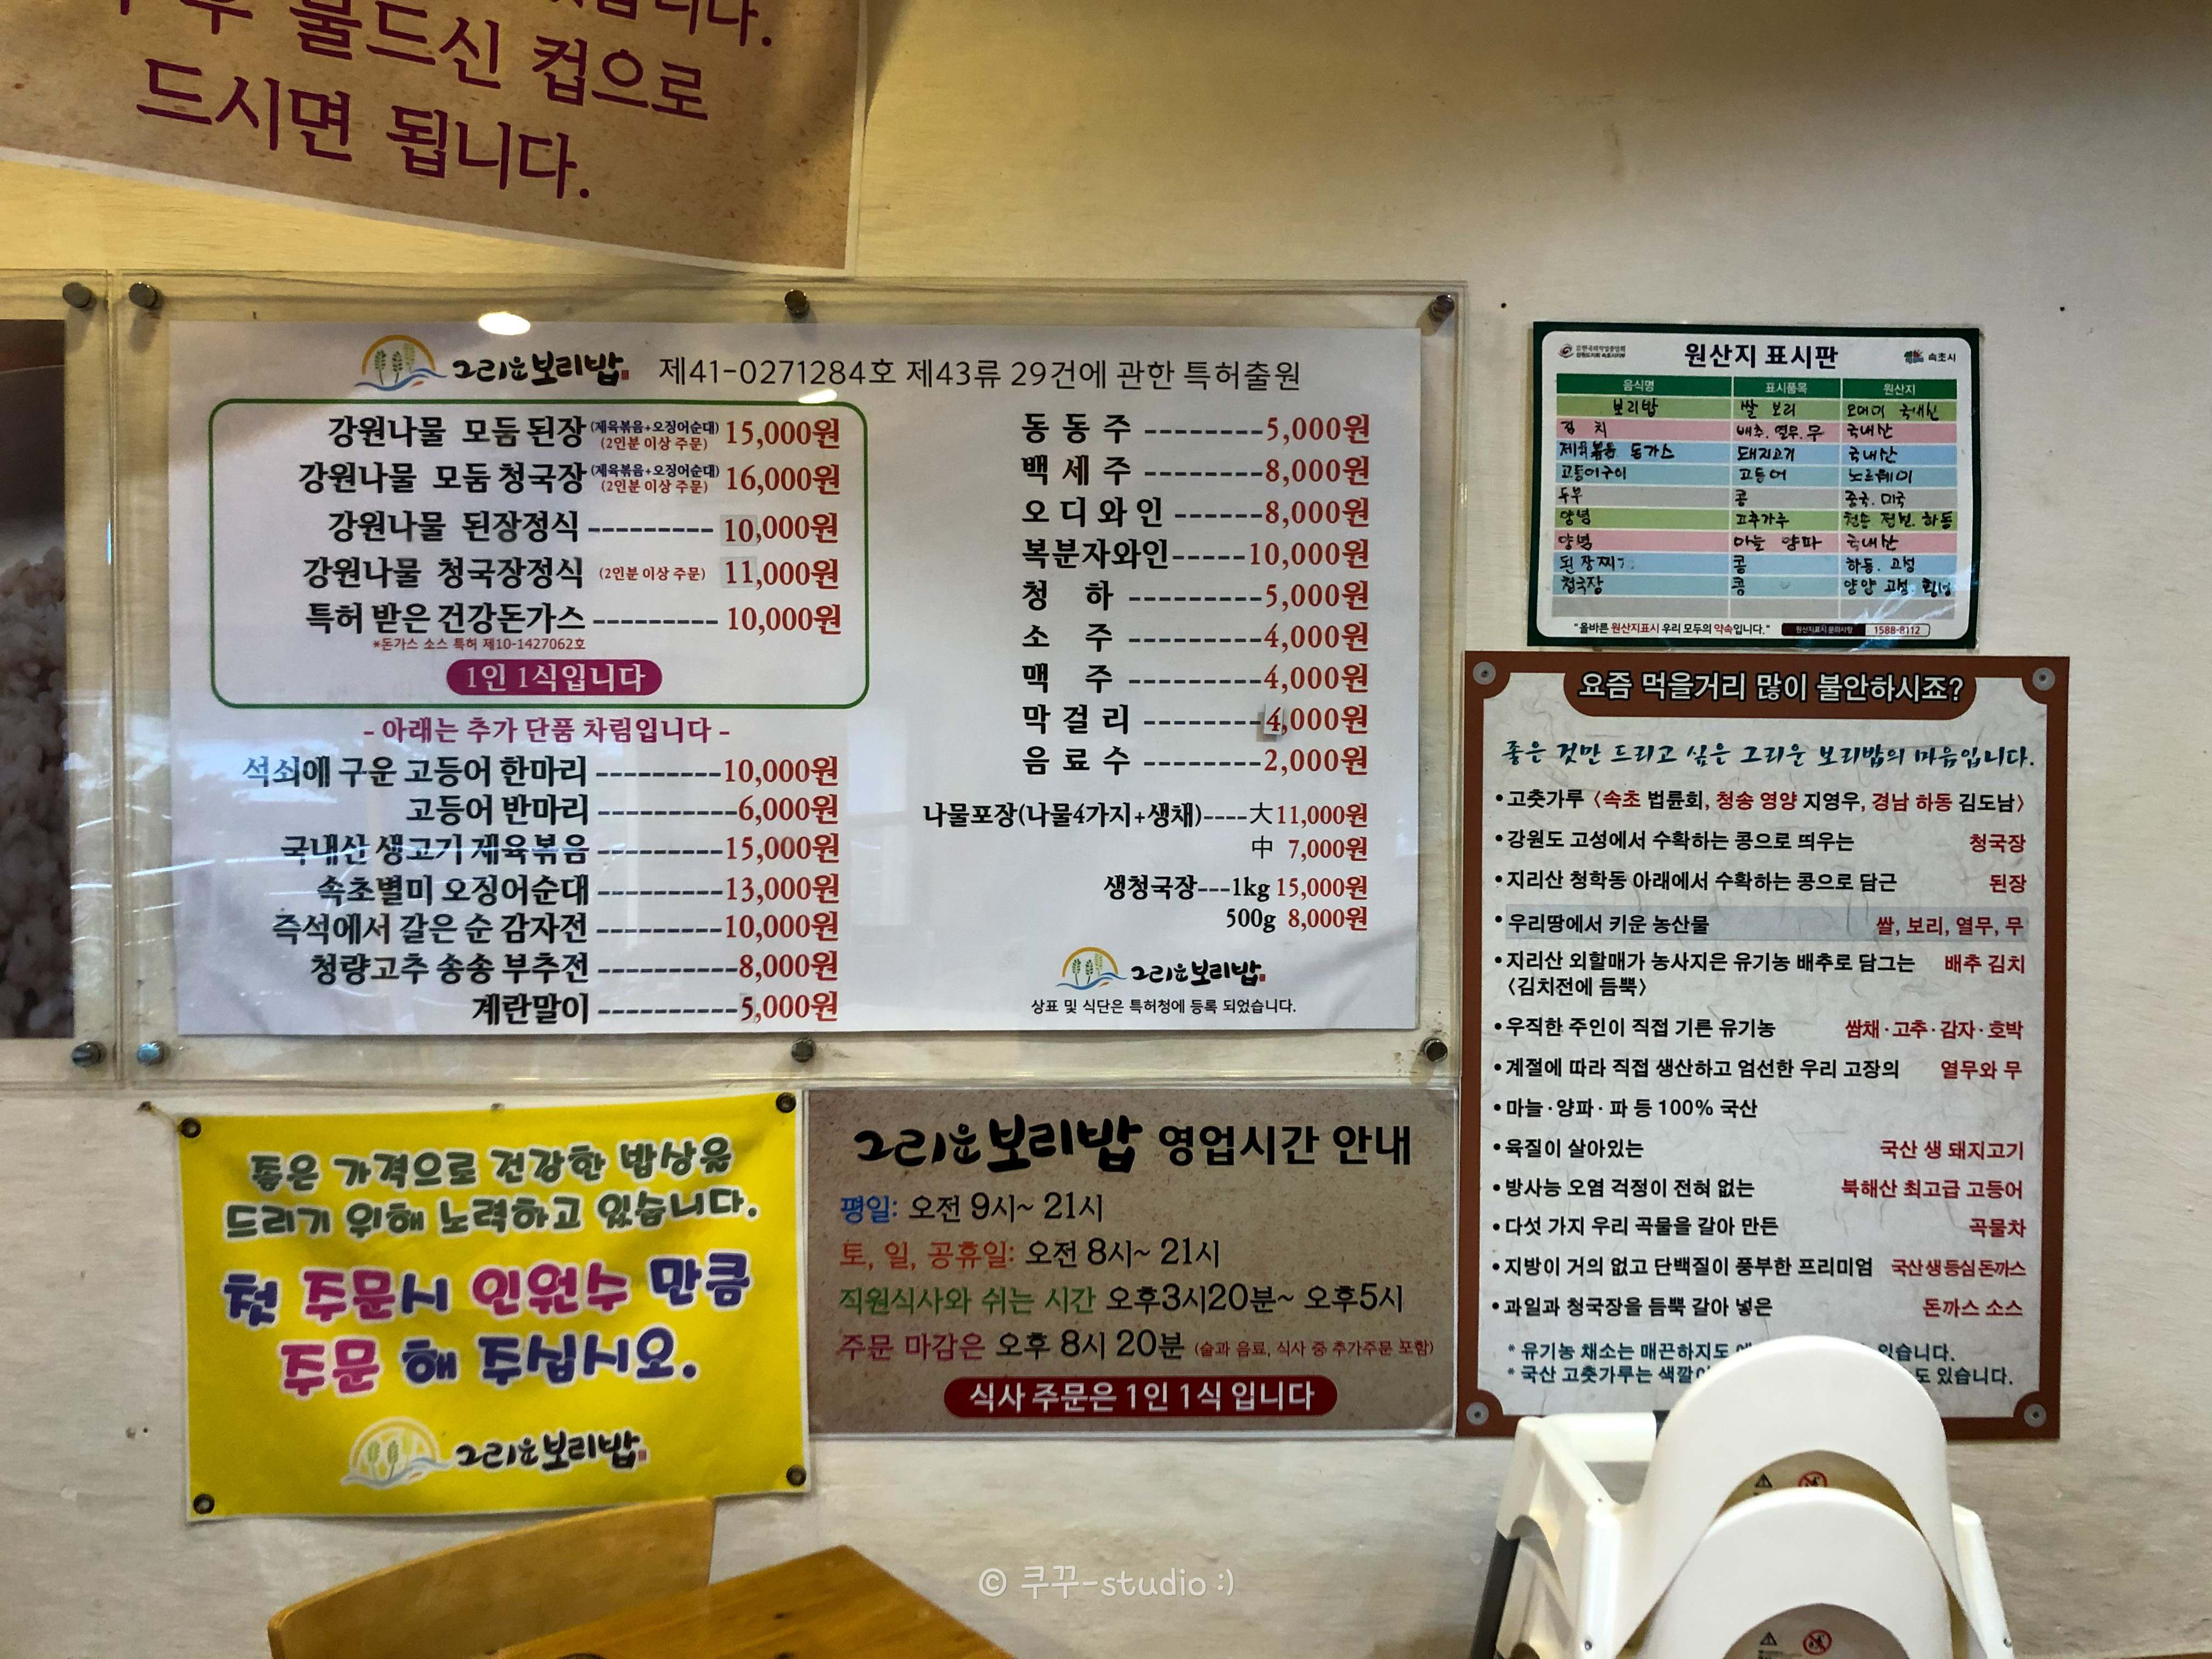 물드신 컵으로
드시면 됩니다.
그리운보리밥 제41-0271284호 제43류 29건에 관한 특허출원
강원나물 모둠 된장 (제육볶음+오징어순대) (2인분 이상 주문) 15,000원
강원나물 모둠 청국장 (제육볶음+오징어순대) (2인분 이상 주문) 16,000원
강원나물 된장정식 --------- 10,000원
강원나물 청국장정식 (2인분 이상 주문) 11,000원
특허 받은 건강돈가스 --------- 10,000원
*돈가스 소스 특허 제10-1427062호
1인 1식입니다
- 아래는 추가 단품 차림입니다 -
석쇠에 구운 고등어 한마리 ---------10,000원
고등어 반마리 ----------6,000원
국내산 생고기 제육볶음 ---------15,000원
속초별미 오징어순대 ---------13,000원
즉석에서 갈은 순 감자전 ---------10,000원
청량고추 송송 부추전 ----------8,000원
계란말이 ----------5,000원
동동주 --------5,000원
백세주 --------8,000원
오디와인 ------8,000원
복분자와인-----10,000원
청 하 ---------5,000원
소 주 ---------4,000원
맥 주 ---------4,000원
막걸리 --------4,000원
음료수 --------2,000원
나물포장(나물4가지+생채)----大 11,000원
中 7,000원
생청국장---1kg 15,000원
500g 8,000원
그리운보리밥
상표 및 식단은 특허청에 등록 되었습니다.
원산지 표시판
속초시
음식명 표시품목 원산지
보리밥 쌀 보리 국내산
김치 배추. 열무. 무 국내산
제육볶음 돈가스 돼지고기 국내산
고등어구이 고등어 노르웨이
두부 콩 중국. 미국
양념 고추가루 청송 하동
양념 마늘 양파 국내산
콩 하동. 고성
청국장 콩 양양 고성
"올바른 원산지표시 우리 모두의 약속입니다." 원산지표시 문의사항 1588-8112
요즘 먹을거리 많이 불안하시죠?
좋은 것만 드리고 싶은 그리운 보리밥의 마음입니다.
•고춧가루 〈속초 법륜회, 청송 영양 지영우, 경남 하동 김도남〉
•강원도 고성에서 수확하는 콩으로 띄우는 청국장
•지리산 청학동 아래에서 수확하는 콩으로 담근 된장
•우리땅에서 키운 농산물 쌀, 보리, 열무, 무
•지리산 외할매가 농사지은 유기농 배추로 담그는 배추 김치
〈김치전에 듬뿍〉
•우직한 주인이 직접 기른 유기농 쌈채·고추·감자·호박
•계절에 따라 직접 생산하고 엄선한 우리 고장의 열무와 무
•마늘·양파·파 등 100% 국산
•육질이 살아있는 국산 생 돼지고기
•방사능 오염 걱정이 전혀 없는 북해산 최고급 고등어
•다섯 가지 우리 곡물을 갈아 만든 곡물차
•지방이 거의 없고 단백질이 풍부한 프리미엄 국산생등심돈까스
•과일과 청국장을 듬뿍 갈아 넣은 돈까스 소스
* 유기농 채소는 매끈하지도 있습니다.
* 국산 고춧가루는 색깔이 도 있습니다.
좋은 가격으로 건강한 밥상을
드리기 위해 노력하고 있습니다.
첫 주문시 인원수 만큼
주문 해 주십시오.
그리운보리밥
그리운보리밥 영업시간 안내
평일: 오전 9시~ 21시
토, 일, 공휴일: 오전 8시~ 21시
직원식사와 쉬는 시간 오후3시20분~ 오후5시
주문 마감은 오후 8시 20분 (술과 음료, 식사 중 추가주문 포함)
식사 주문은 1인 1식 입니다
© 쿠꾸-studio :)